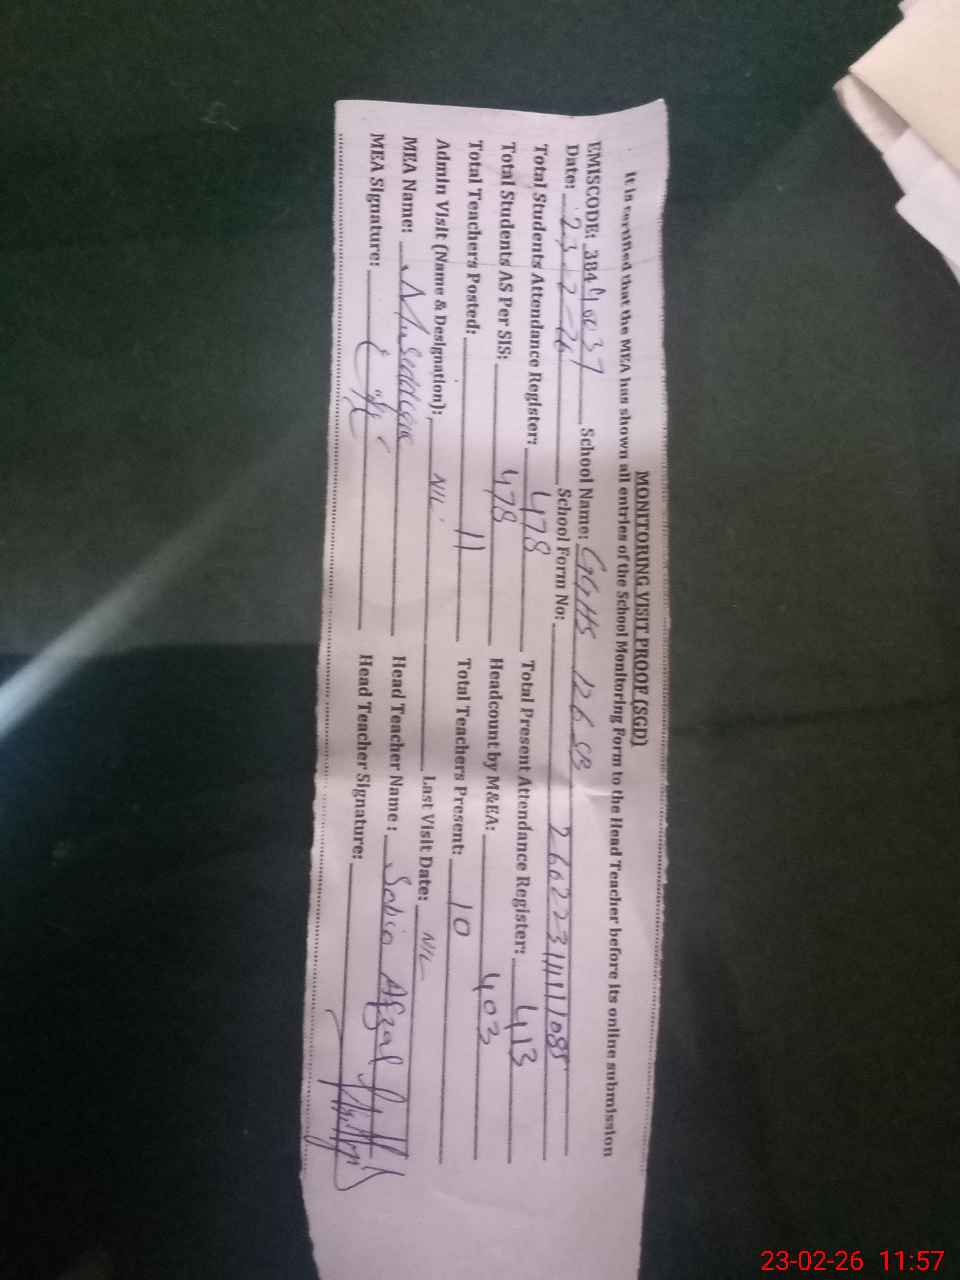 MONITORING VISIT PROOF (SGD)
It is certified that the MEA has shown all entries of the School Monitoring Form to the Head Teacher before its online submission
EMISCODE: 38440037 School Name: GGHS 126 SB
Date: 23-2-26 School Form No:
Total Students Attendance Register: 478 Total Present Attendance Register: 413
Total Students AS Per SIS: 478 Headcount by M&EA: 403
Total Teachers Posted: 11 Total Teachers Present: 10
Admin Visit (Name & Designation): NIL Last Visit Date: NIL
MEA Name: Head Teacher Name: Sobia Afzal
MEA Signature: Head Teacher Signature:
23-02-26 11:57